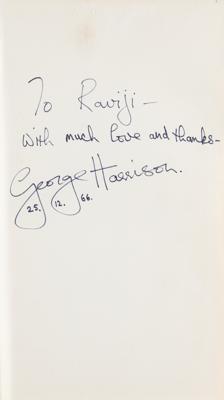 To Raviji-
With much love and thanks-
George Harrison.
25. 12. 66.